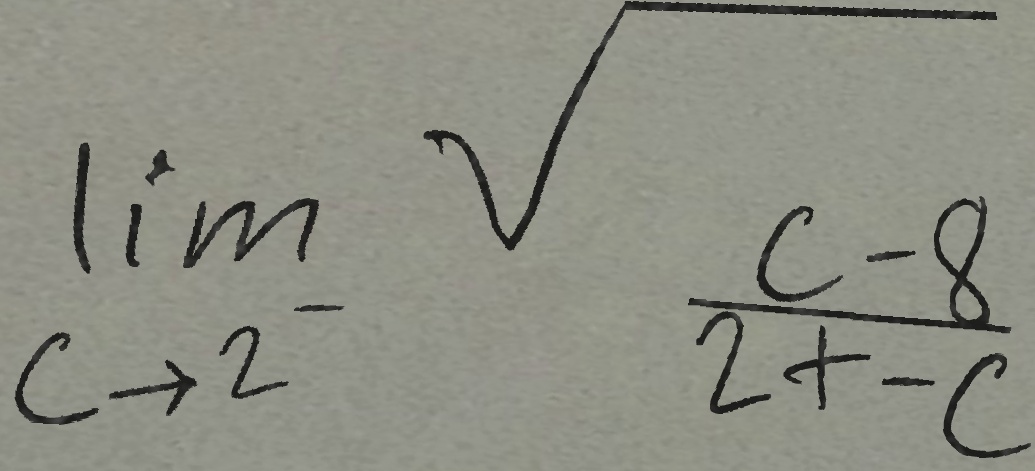 \lim_{c \to 2^-} \sqrt{\frac{c-8}{2+-c}}